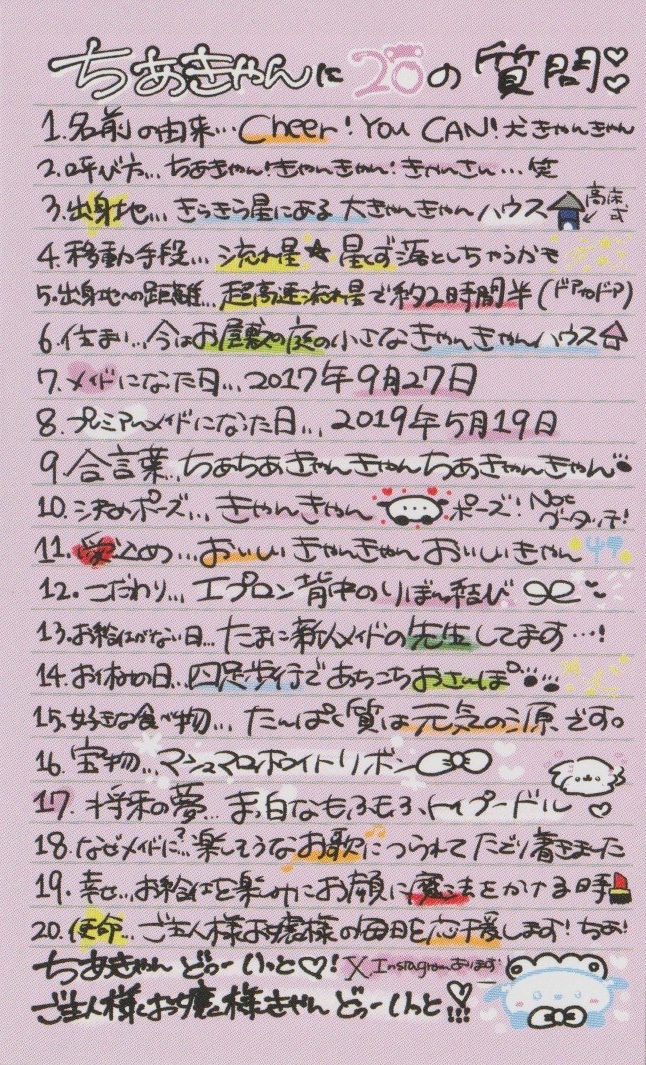 ちあきゃんに20の質問
1.名前の由来…Cheer!You CAN!犬きゃんきゃん
2.呼び方…ちあきゃん!きゃんきゃん!きゃんさん…笑
3.出身地…きらきら星にある大きゃんきゃんハウス 高床式
4.移動手段…流れ星★星くず落としちゃうかも
5.出身地への距離…超高速流れ星で約2時間半(ドアtoドア)
6.住まい…今はお屋敷の庭の小さなきゃんきゃんハウス
7.メイドになった日…2017年9月27日
8.プレミアムメイドになった日…2019年5月19日
9.合言葉…ちあちあきゃんきゃんちあきゃんきゃん
10.決めポーズ…きゃんきゃん ポーズ!Notグータッチ!
11.愛込め…おいしいきゃんきゃんおいしいきゃん
12.こだわり…エプロン背中のりぼん結び
13.お給仕がない日…たまに新人メイドの先生してます…!
14.お休みの日…四足歩行であちこちおさんぽ
15.好きな食べ物…たんぱく質は元気の源です。
16.宝物…マシュマロホワイトリボン
17.将来の夢…まっ白なもふもふトイプードル♡
18.なぜメイドに?…楽しそうなお歌につられてたどり着きました
19.幸せ…お給仕を楽しみにお顔に魔法をかける時
20.使命…ご主人様お嬢様の毎日を応援します!ちあ!
ちあきゃんどぅーいっと♡! X Instagramあります!
ご主人様お嬢様きゃんどぅーいっと♡!!!